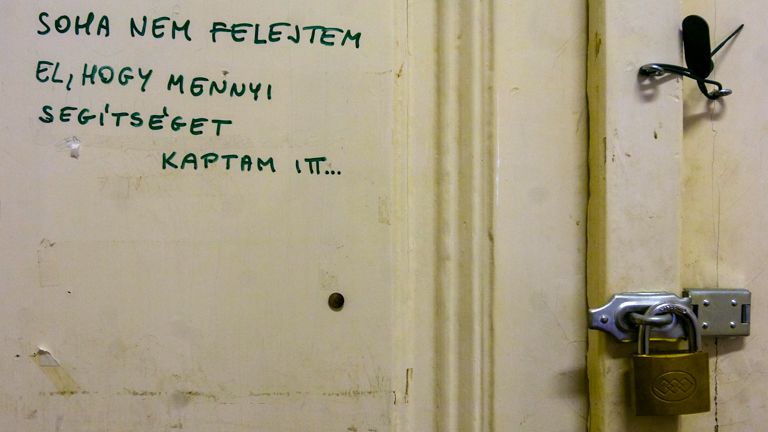 SOHA NEM FELEJTEM
EL, HOGY MENNYI
SEGÍTSÉGET
KAPTAM ITT...